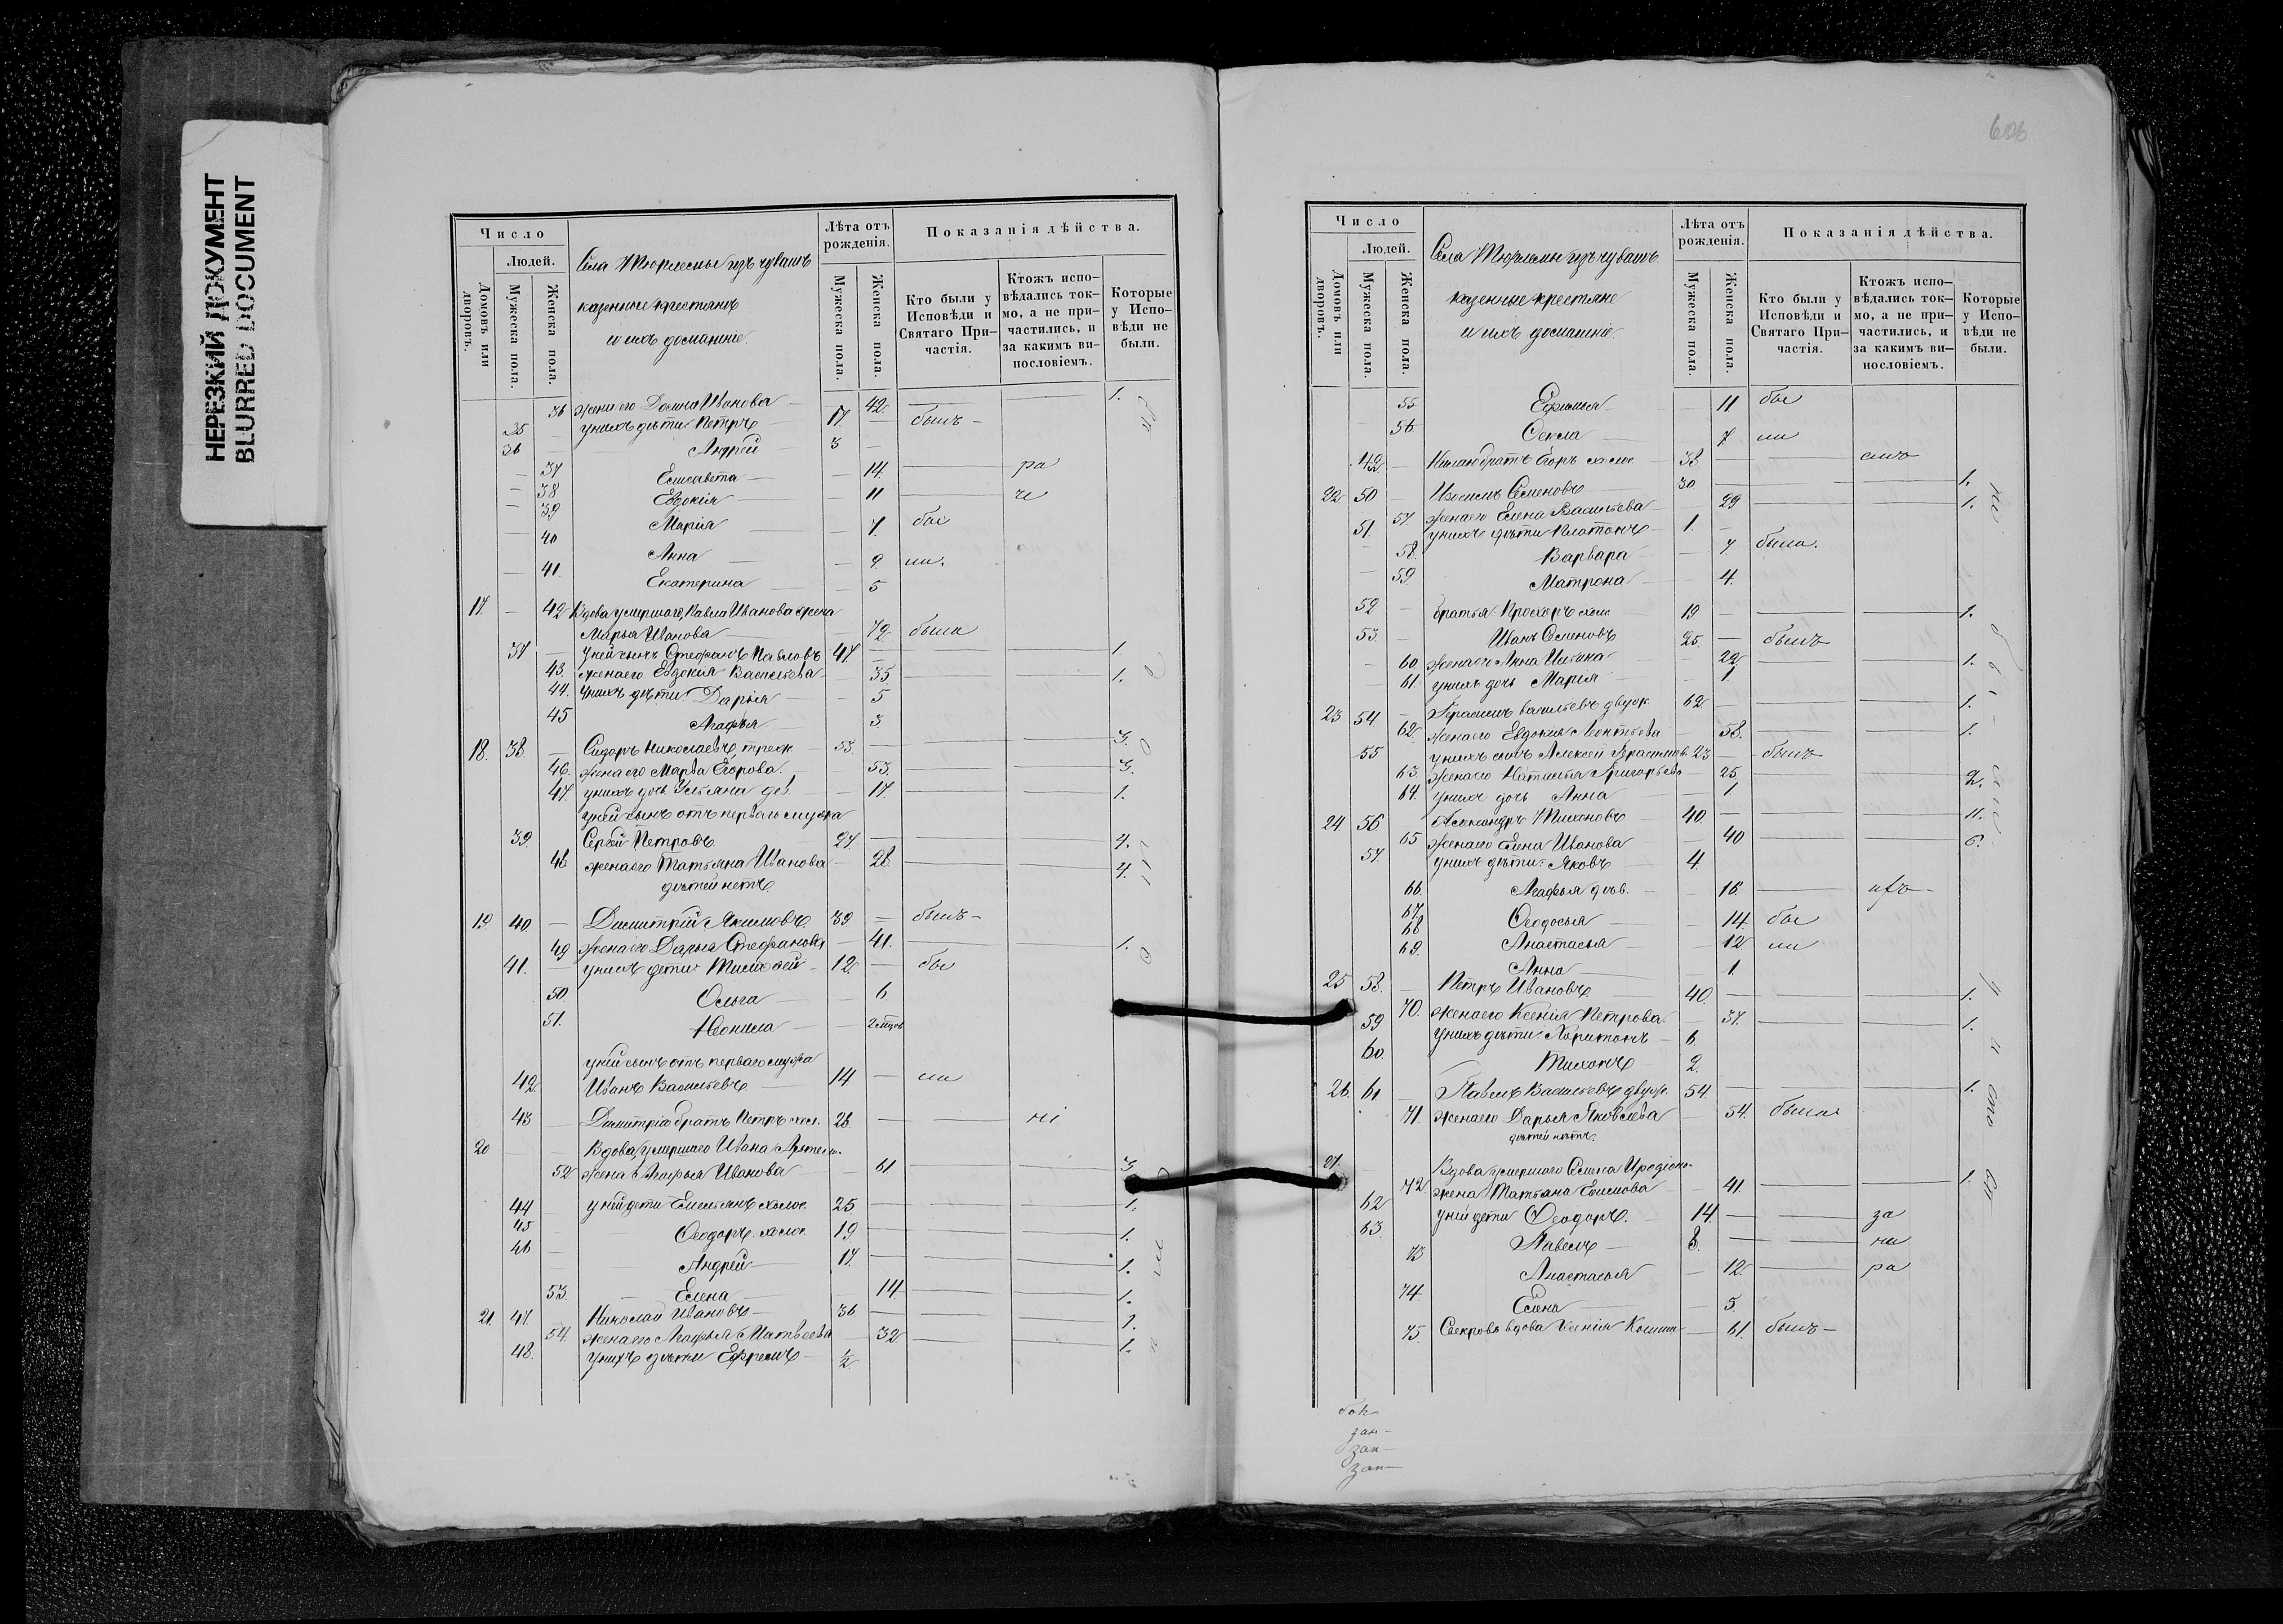 НЕРЕЗКИЙ ДОКУМЕНТ
BLURRED DOCUMENT
Число
Людей.
Домовъ или дворовъ.
Мужеска пола.
Женска пола.
Села Тюрлемы изъ чувашъ
казенные крестьянъ
и ихъ домашніе.
Лѣта отъ рожденія.
Мужеска пола.
Женска пола.
Показанія дѣйства.
Кто были у Исповѣди и Святаго Причастія.
Ктожъ исповѣдались токмо, а не причастились, и за какимъ винословіемъ.
Которые у Исповѣди не были.
36 жена его Домна Иванова 42 1.
35 у нихъ дѣти Петръ 17 былъ
36 Андрей 3
37 Елисавета 14 ра
38 Евдокія 11
39 Марія 7. бы
40 Анна 9 ли.
41. Екатерина 5
17. 42 Вдова умершаго Павла Иванова жена
Марья Иванова 72 была
37 у ней сынъ Стефанъ Павловъ 47 1
43. жена его Евдокия Васильева 35 1.
44. у нихъ дѣти Дарья 5
45 Агафья 3
18. 38 Сидоръ Николаевъ 53. 3.
46. жена его Марѳа Егорова. 53. 3.
47 у нихъ дочь Ульяна дѣв 17. 1.
у ней сынъ отъ перваго мужа
39. Сергей Петровъ 27 4.
48 жена его Татьяна Иванова 28 4.
дѣтей нетъ.
19. 40 Димитрій Якимовъ 39 былъ
49 жена его Дарья Стефанова 41. 1.
41. у нихъ дети Тимофей 12. бы
50 Ольга 6
51. Неонила 2 мѣсяц
у ней сынъ отъ перваго мужа
42. Иванъ Васильевъ 14 ли
43 Димитрія братъ Петръ холос. 28
20 Вдова умершаго Ивана Артем
52 жена Агафья Иванова 61 3
44 у ней дети Емельянъ холос. 25 1.
45 Ѳеодоръ холос. 19 1.
46 Андрей 17. 1.
53. Елена 14 1.
21. 47. Николай Ивановъ 36 1.
54. жена его Агафья Матвѣева 32 1.
48. у нихъ дѣти Ефремъ 1/2
606
Число
Людей.
Домовъ или дворовъ.
Мужеска пола.
Женска пола.
Села Тюрлемы изъ чувашъ
казенные крестяне
и ихъ домашніе.
Лѣта отъ рожденія.
Мужеска пола.
Женска пола.
Показанія дѣйства.
Кто были у Исповѣди и Святаго Причастія.
Ктожъ исповѣдались токмо, а не причастились, и за какимъ винословіемъ.
Которые у Исповѣди не были.
55 Ефимья 11 бы
56 Ѳекла 7 ли
49 братъ Егоръ холос 38
22 50 Семеновъ 30 1.
57. жена его Елена Васильева 29 1.
51. у нихъ дѣти Платонъ 1.
58. Варвара 7 была.
59. Матрона 4.
52 братья: Прохоръ хол 19. 1.
53. Иванъ Семеновъ 25. былъ
60 жена его Анна 22 1.
61. у нихъ дочь Марія 1
23 54. Герасимъ Васильевъ 62 1.
62. жена его Евдокия Леонтьева 58. 1.
55 у нихъ сынъ Алексей Герасимов 23 былъ
63. жена его Наталья Григорьева 25 2.
64. у нихъ дочь Анна 1
24 56 Александръ Тихоновъ 40 11.
65 жена его Елена Иванова 40 6.
57 у нихъ дѣти Яковъ 4.
66. Агафья дѣв. 16
67 Ѳеодосья 14. бы
68 Анастасья 12 ли
69. Анна 1.
25 58. Петръ Ивановъ 40. 1.
70. жена его Ксенія Петрова 37. 1.
59 у нихъ дѣти: Харитонъ 6.
60. Тихонъ 2.
26. 61 Павелъ Васильевъ 54. 1.
71. жена его Дарья Яковлева 54. была
дѣтей нетъ.
27. Вдова умершаго Семена Иродіоно
72. жена Татьяна Ефимова 41. 1.
62 у ней дети Ѳеодоръ. 14 за
63. Павелъ 8. ни
73 Анастасья 12. ра
74. Елена 5.
75. Свекровь вдова Ксенія 61. былъ
зап
зап
зап